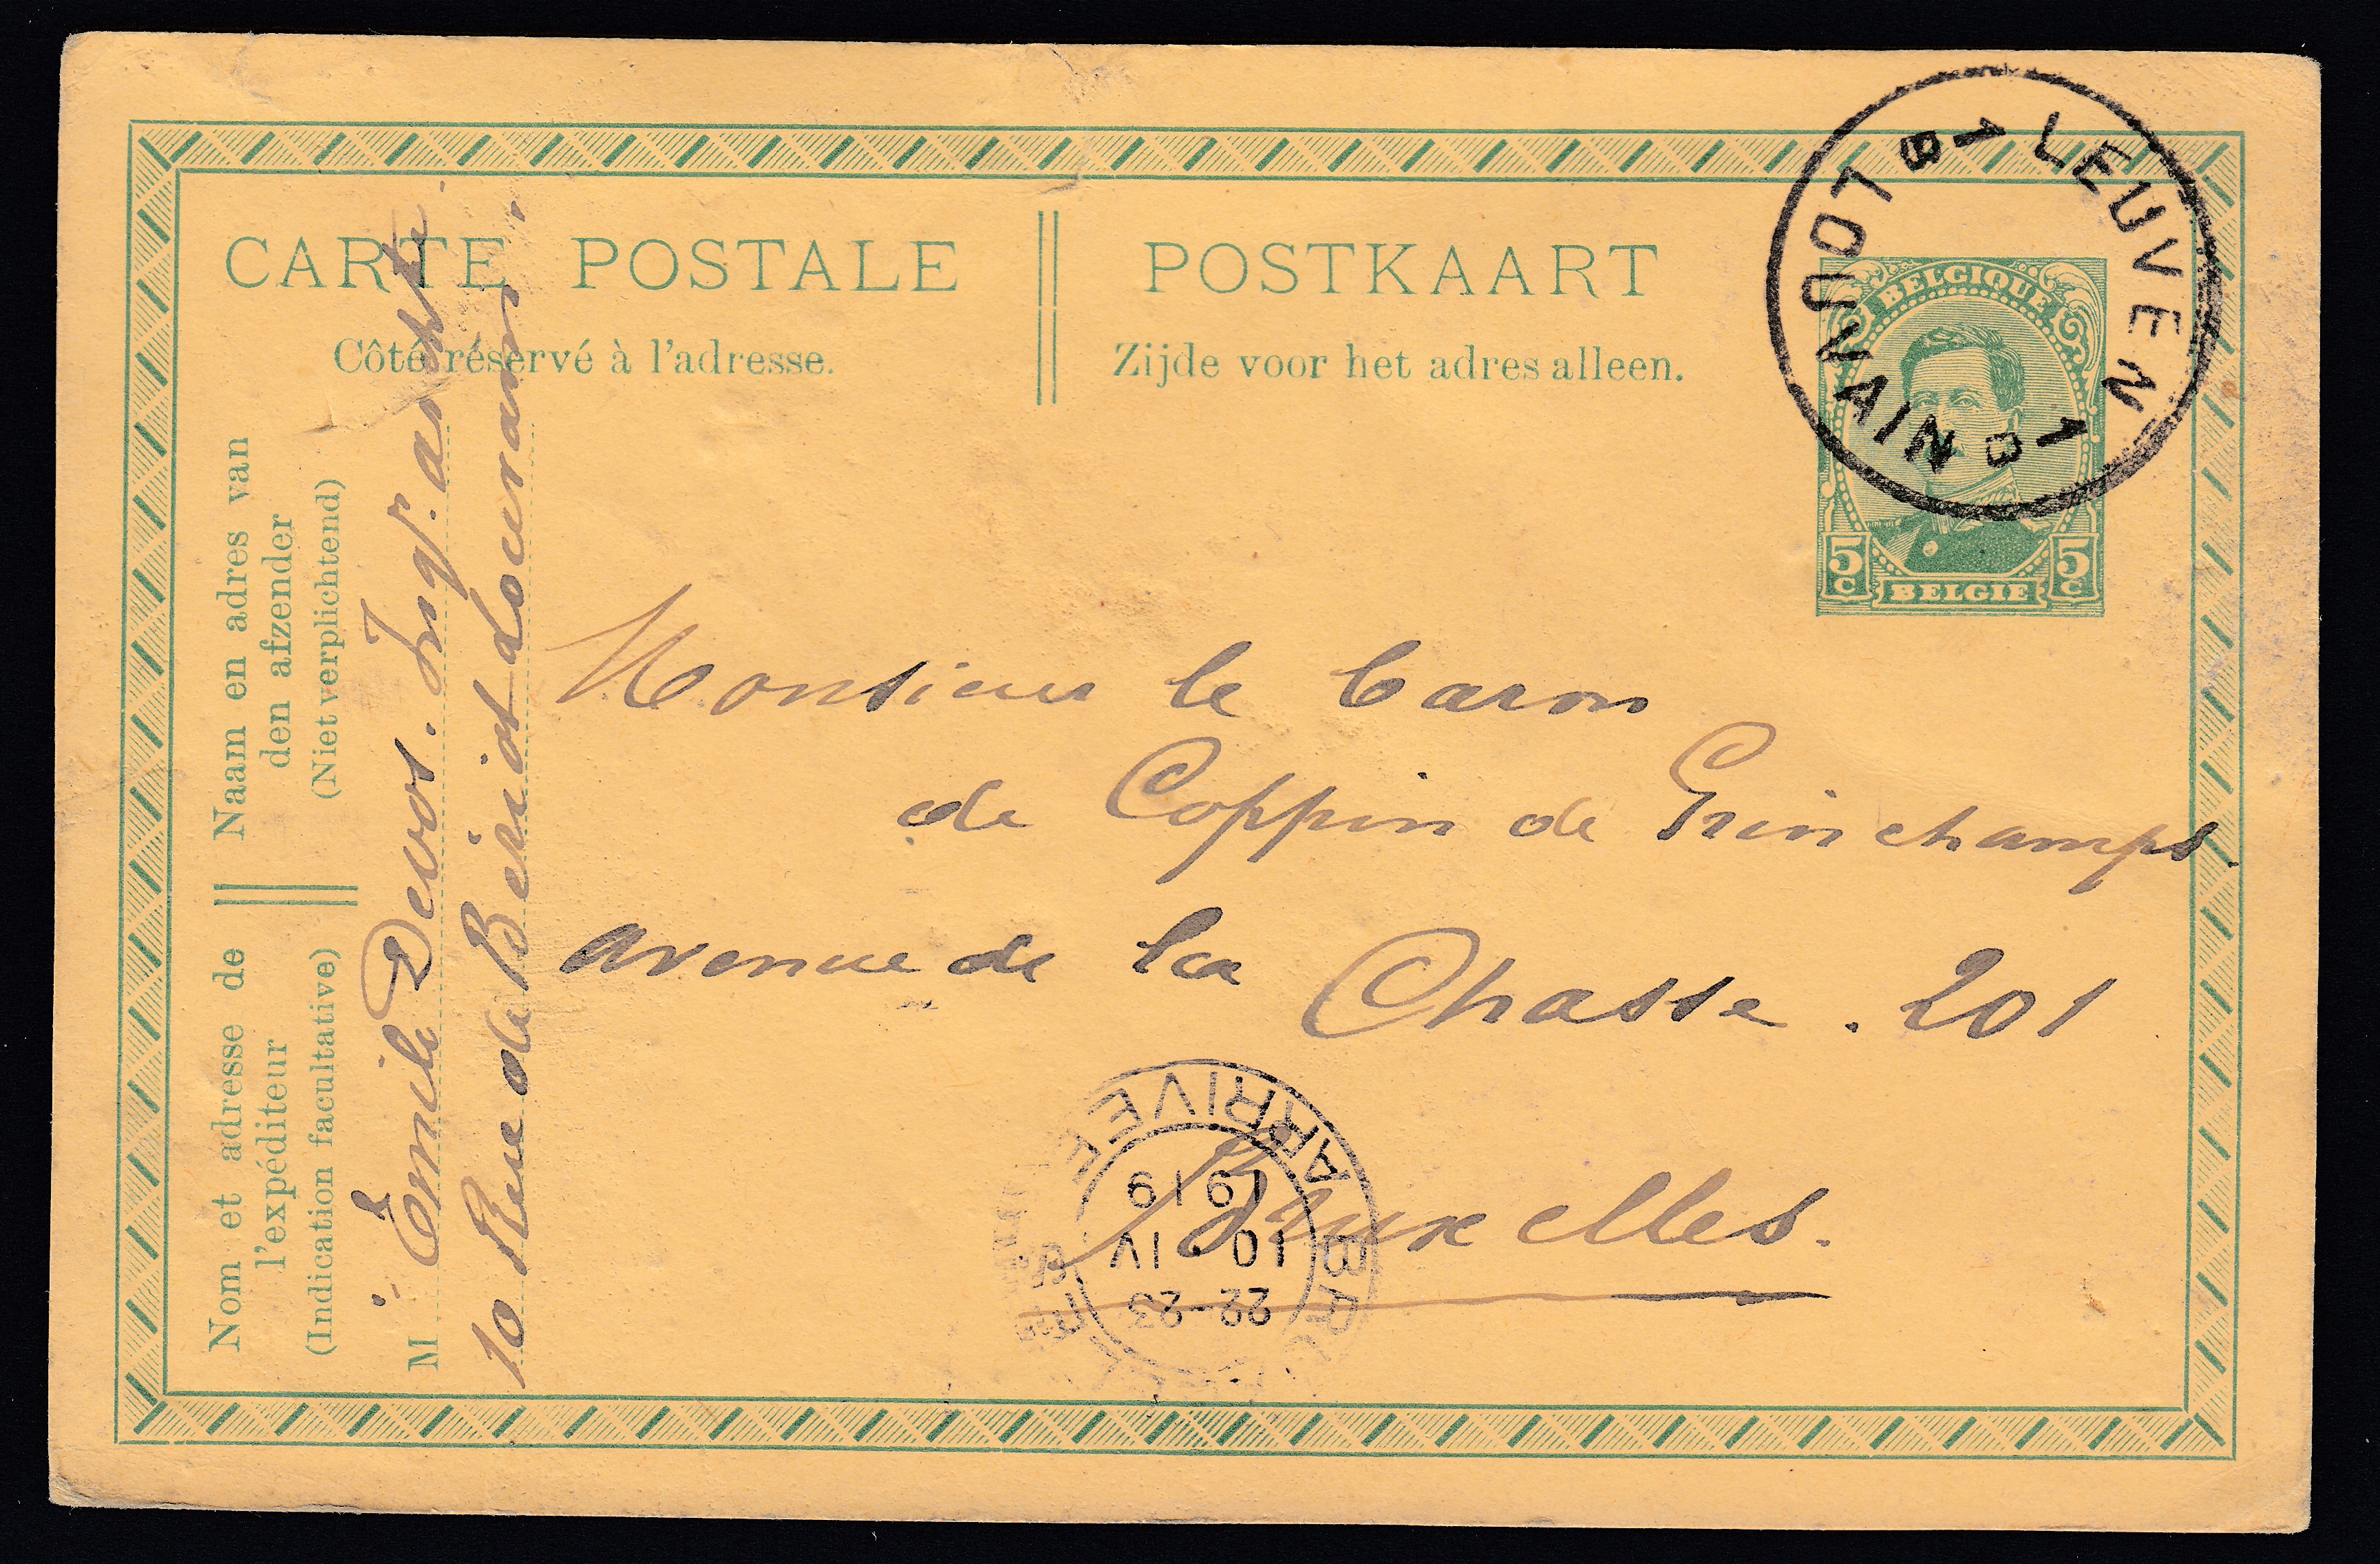 CARTE POSTALE
Côté réservé à l'adresse.
POSTKAART
Zijde voor het adres alleen.
LEUVEN 1B
LOUVAIN 1B
BELGIQUE
5c BELGIË 5c
Naam en adres van
den afzender
(Niet verplichtend)
Nom et adresse de
l'expéditeur
(Indication facultative)
M Émile Devos. Ingr. archte.
10 Rue de Bériot Louvain.
Monsieur le baron
de Coppin de Grinchamps.
avenue de la Chasse. 201
Bruxelles.
ARRIVEE
1919
10 IV
22-23